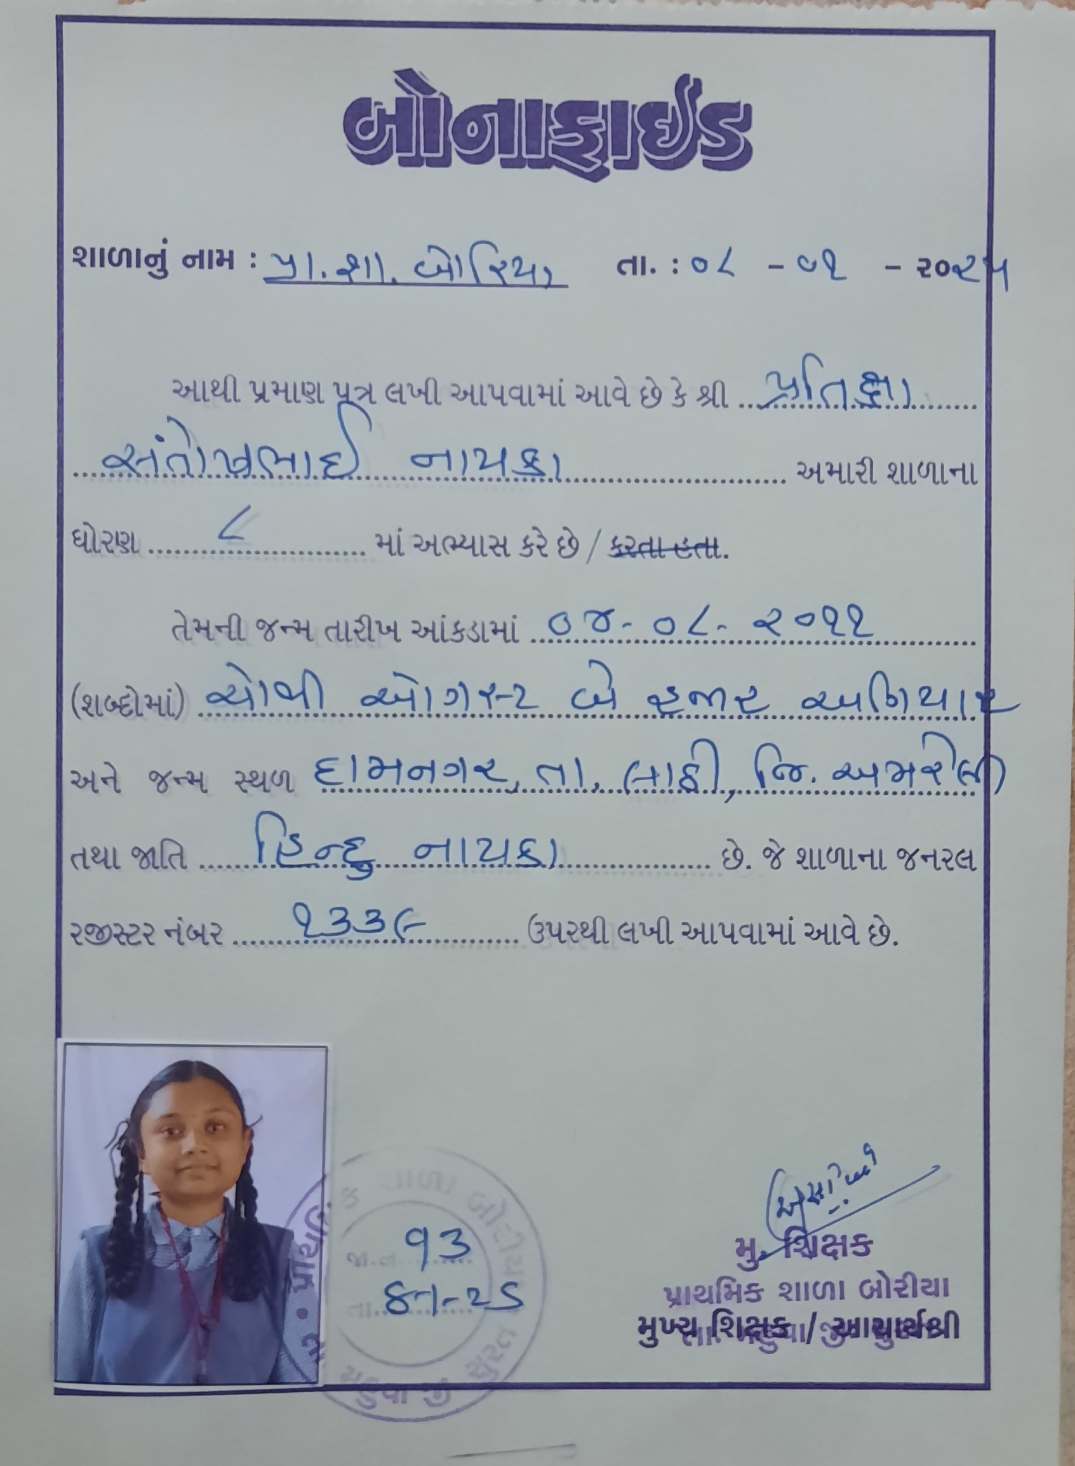 બોનાફાઈડ
શાળાનું નામ : પ્રા. શા. બોરિયા તા. : ૦૮ - ૦૧ - ૨૦૨૫
આથી પ્રમાણ પત્ર લખી આપવામાં આવે છે કે શ્રી પ્રતિક્ષા
સંતોષભાઈ નાયકા અમારી શાળાના
ધોરણ ૮ માં અભ્યાસ કરે છે / કરતા હતા.
તેમની જન્મ તારીખ આંકડામાં ૦૪-૦૮-૨૦૧૧
(શબ્દોમાં) ચોથી ઓગસ્ટ બે હજાર અગિયાર
અને જન્મ સ્થળ દામનગર, તા. લાઠી, જિ. અમરેલી
તથા જાતિ હિન્દુ નાયકા છે. જે શાળાના જનરલ
રજીસ્ટર નંબર ૧૩૩૯ ઉપરથી લખી આપવામાં આવે છે.
પ્રાથમિક શાળા બોરીયા
જા.નં. 93
તા.
મહુવા જી સુરત
મુ. શિક્ષક
પ્રાથમિક શાળા બોરીયા
મુખ્ય શિક્ષક / આચાર્યશ્રી